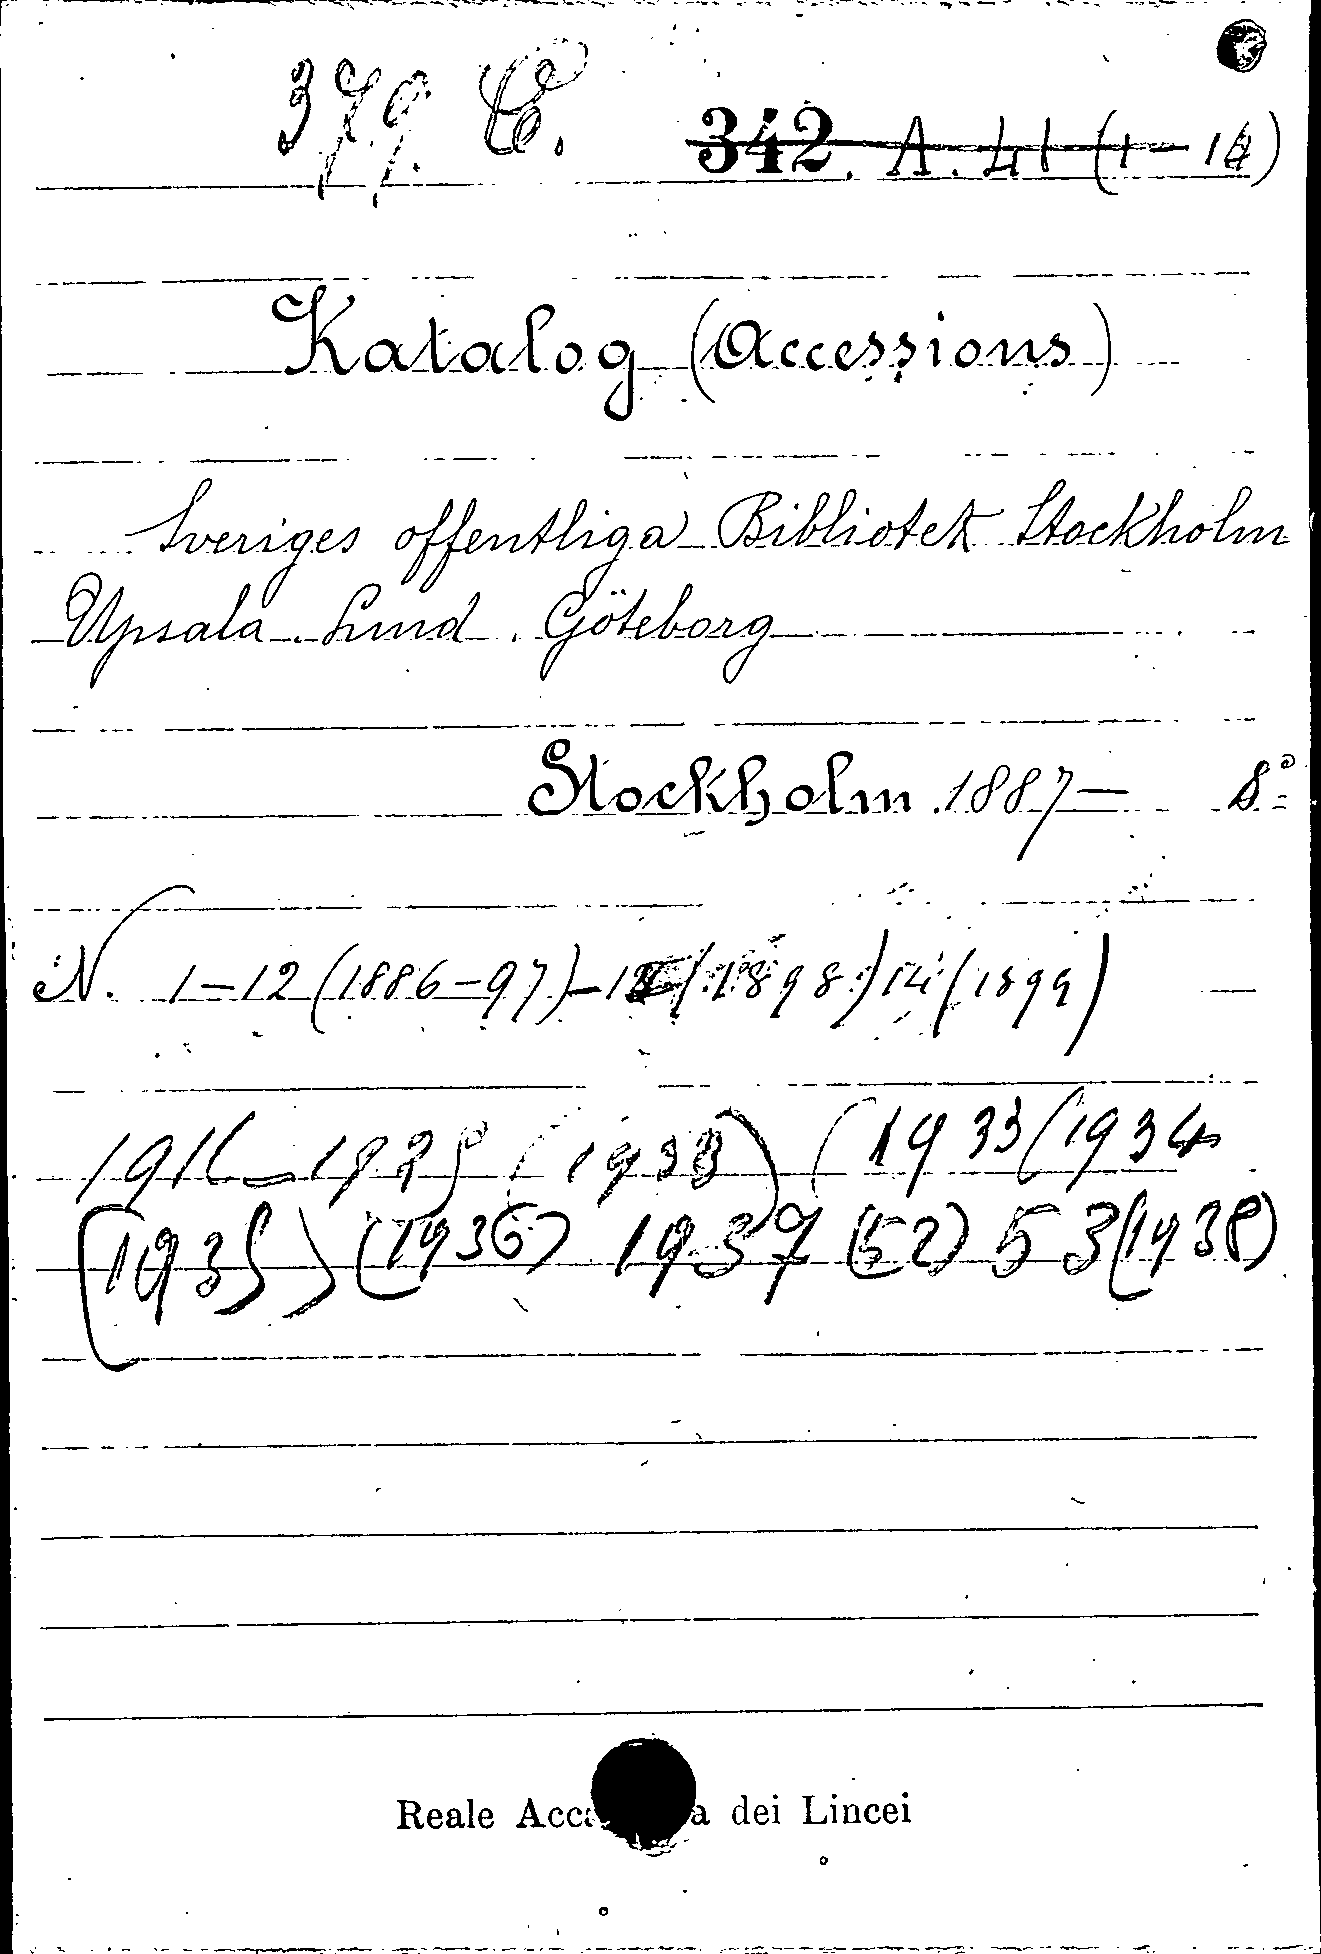 379. C. 342. A. 41 (1-14)
Katalog (Accessions)
Sveriges offentliga Bibliotek Stockholm
Upsala. Lund. Göteborg
Stockholm 1887— 8°
N. 1-12 (1886-97)-13 (1898) 14 (1899)
1916-1929 (1933) (1933 (1934
(1935) (1936) 1937 (52) 53 (1938)
Reale Acca a dei Lincei